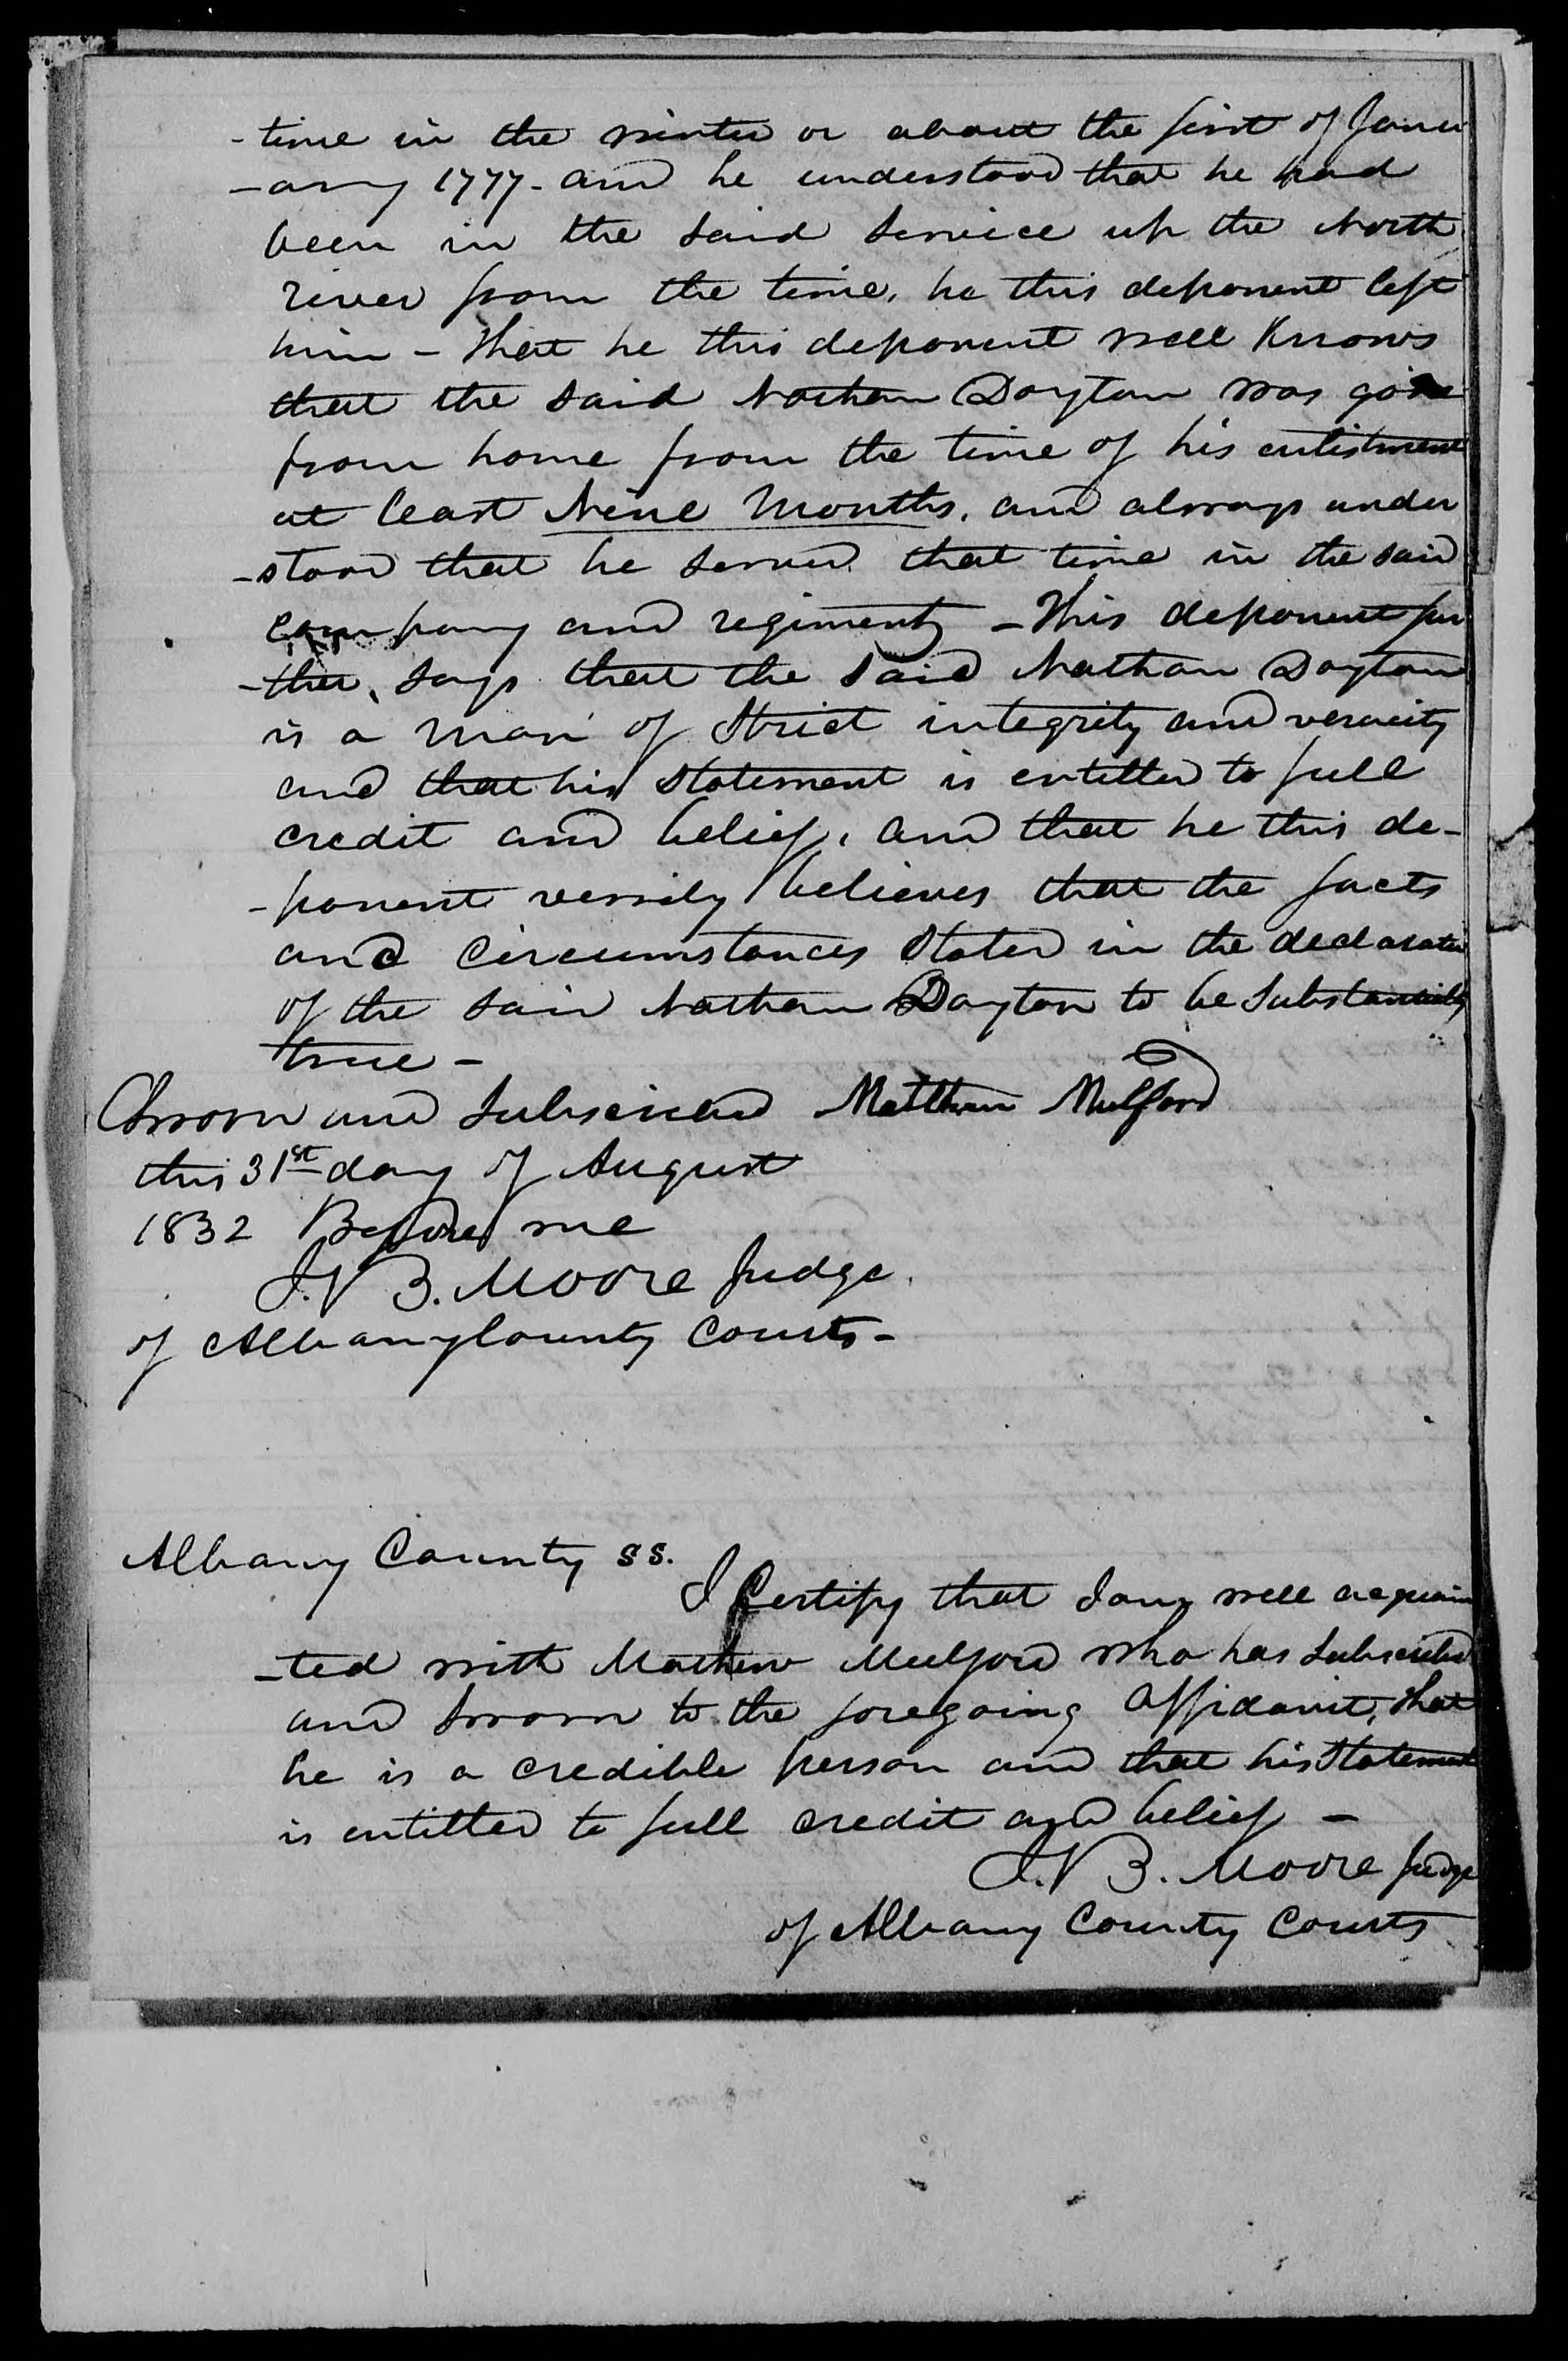 -time in the winter or about the first of Janu
-ary 1777 - and he understood that he had
been in the said service up the North
river from the time, he this deponent left
him - That he this deponent well knows
that the said Nathan Dayton was gone
from home from the time of his enlistment
at least Nine Months, and always under
-stood that he served that time in the said
company and regiment - This deponent fur
-ther, says that the said Nathan Dayton
is a man of strict integrity and veracity
and that his statement is entitled to full
credit and belief, and that he this de-
-ponent verrily believes that the facts
and circumstances stated in the declaration
of the said Nathan Dayton to be substantially
true -
Sworn and subscribed Matthew Mulford
this 31st day of August
1832 Before me
J. V B. Moore Judge
of Albany County Courts -
Albany County ss.
I Certify that I am well acquain
-ted with Mathew Mulford who has subscribed
and sworn to the foregoing affidavit, that
he is a credible person and that his statement
is entitled to full credit and belief -
J. V B. Moore Judge
of Albany County Courts